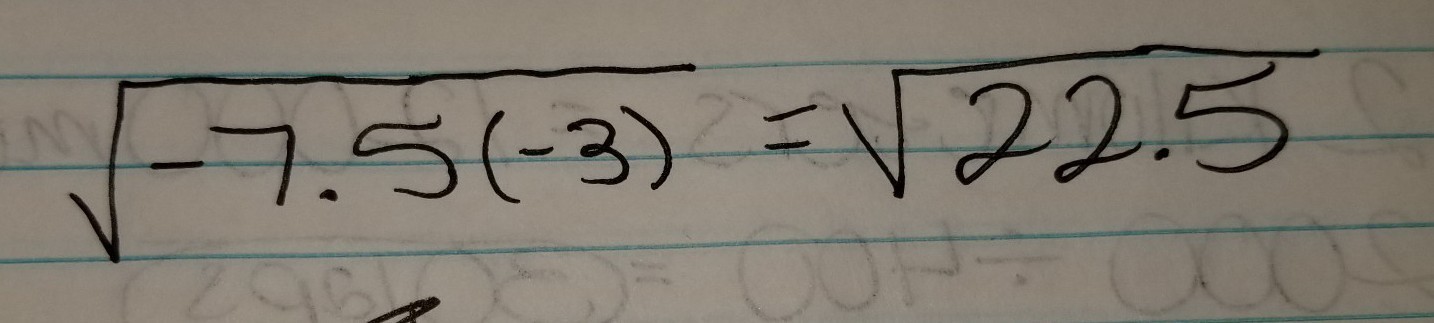 √-7.5(-3) = √22.5